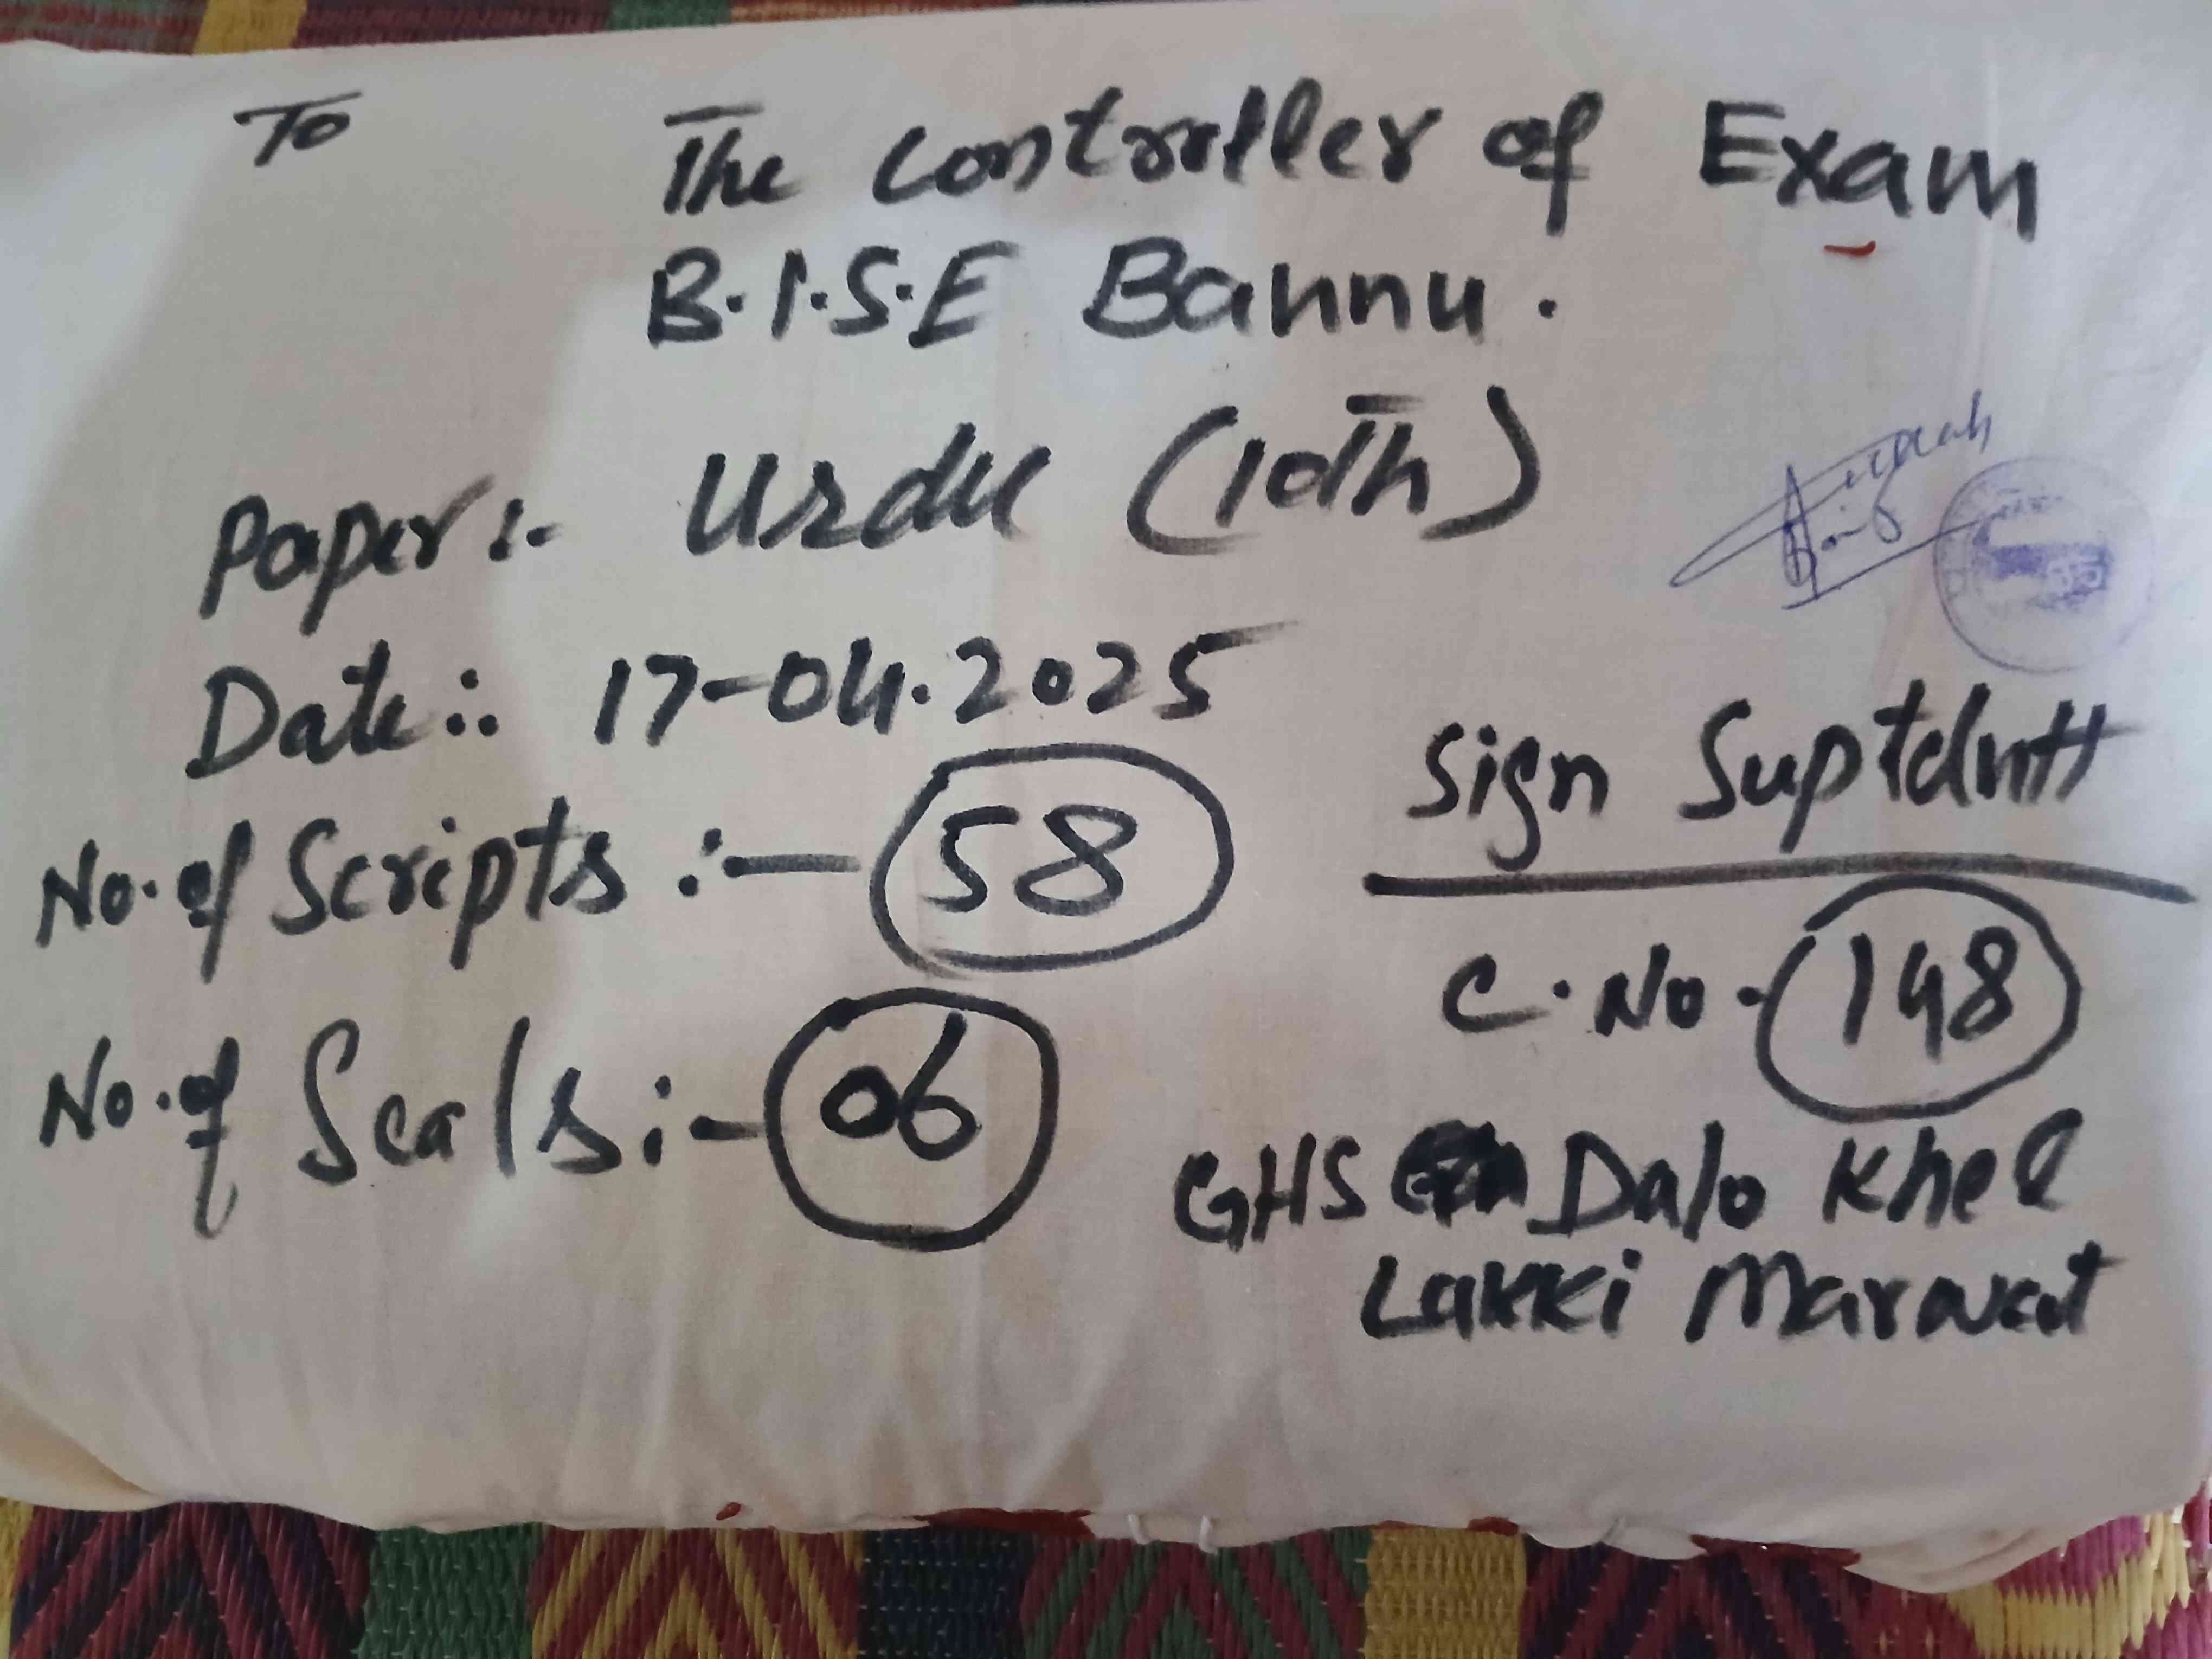 To
The Controller of Exam
B.I.S.E Bannu.
Paper:- Urdu (10th)
Date:: 17-04.2025
No. of Scripts :- 58
No. of Seals:- 06
Sign Suptdntt
C. No. 148
GHS Dalo Khel
Lakki Marwat